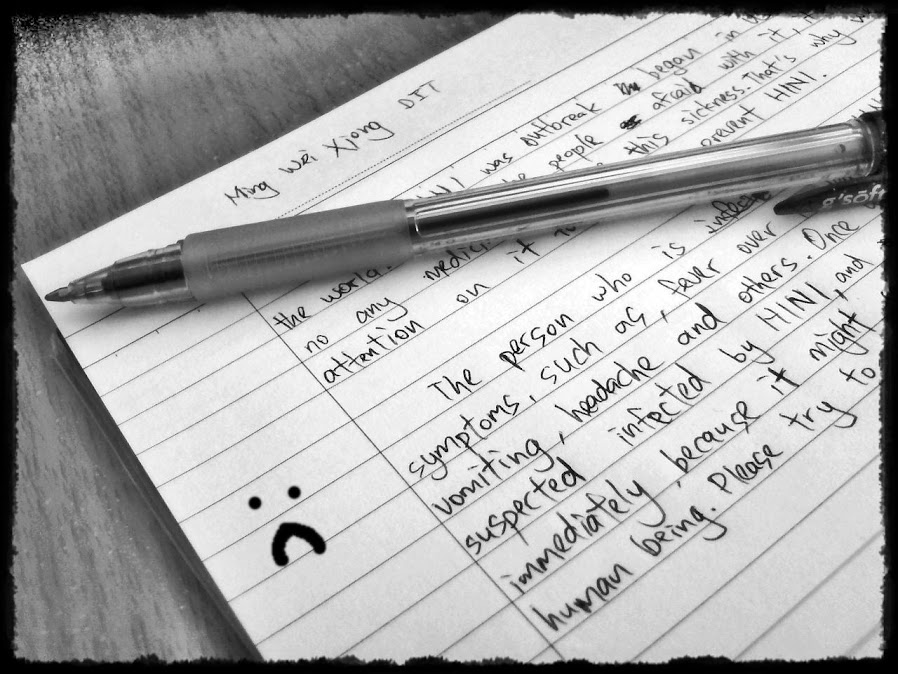 Ming Wei Xiong DIT
H1N1 was outbreak began in
the people afraid with it, it
this sickness. That's why
prevent H1N1.
g'soft
the world.
no any medici
attention on it
The person who is
symptoms, such as, fever over
vomiting, headache and others. Once
suspected infected by H1N1, and
immediately, because it might
human being. Please try to